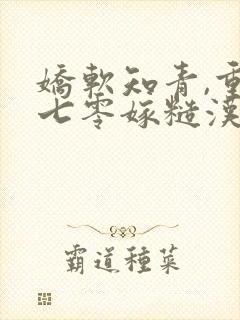 嬌軟知青,重
七零嫁糙漢
霸道種菜